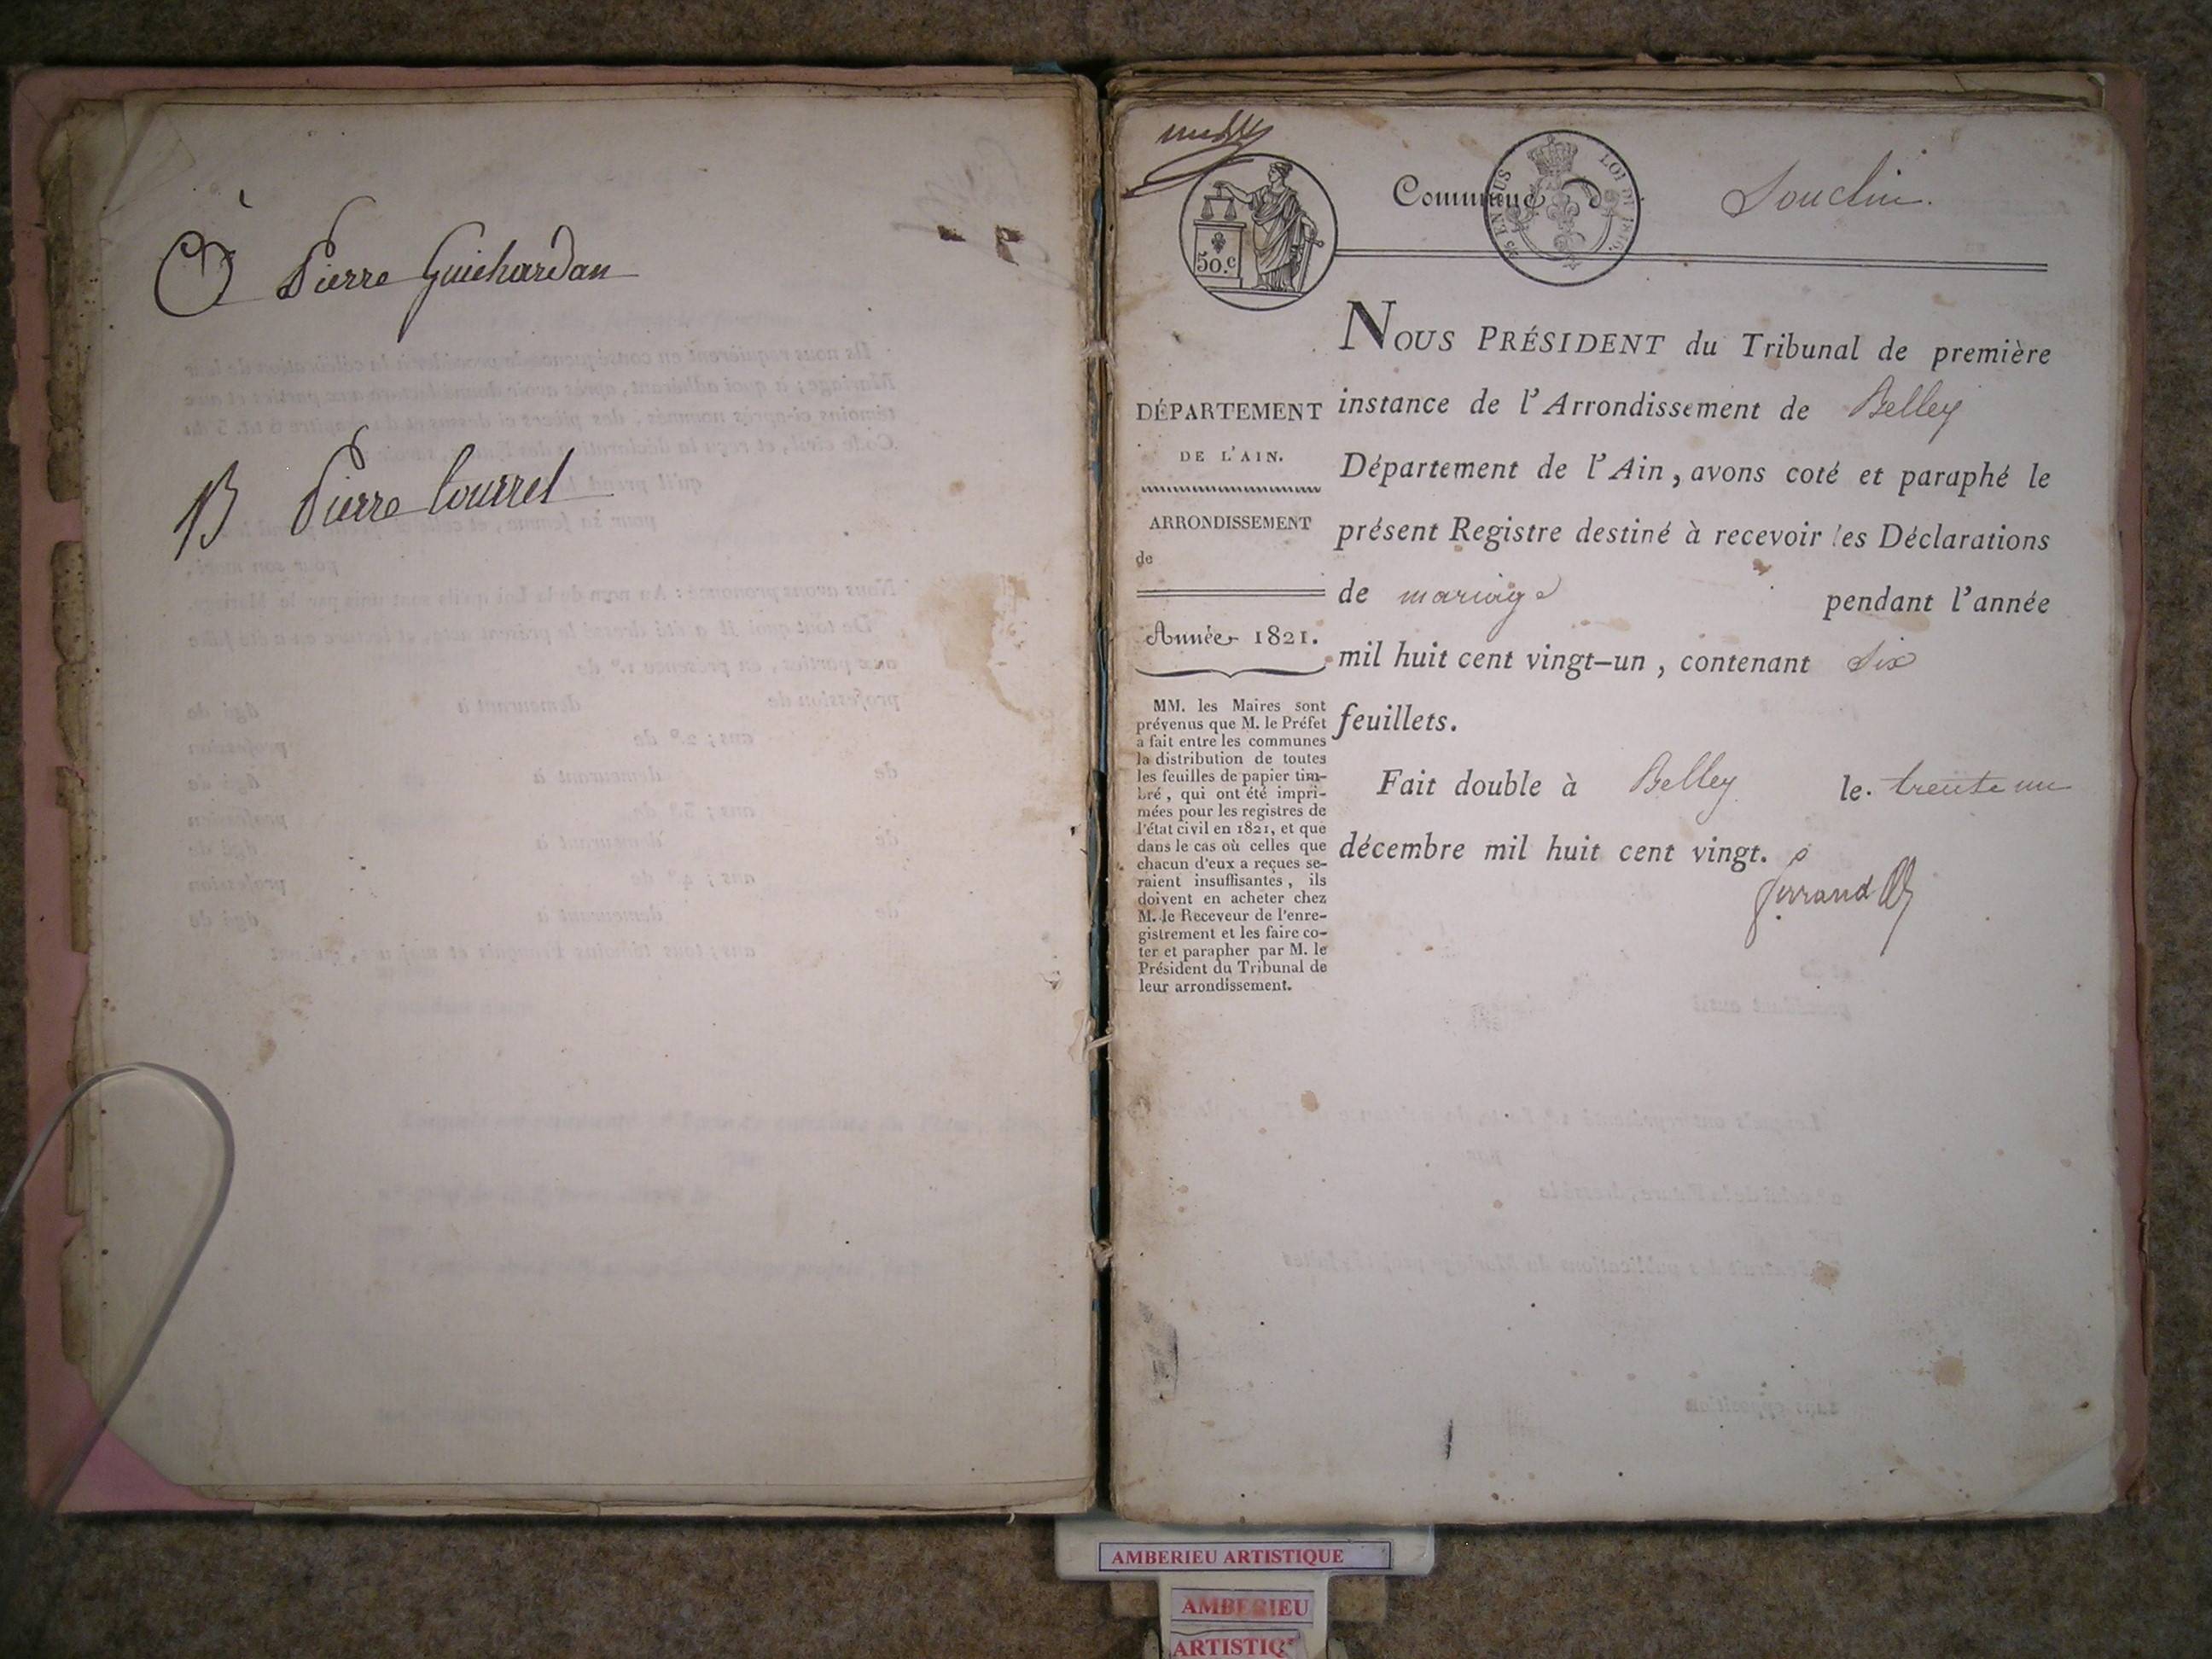 Pierre Guichardan
Pierre Courrel
Commune de Souclin.
50.c
LOI DE 1816.
NOUS PRÉSIDENT du Tribunal de première
instance de l'Arrondissement de Belley
Département de l'Ain, avons coté et paraphé le
présent Registre destiné à recevoir les Déclarations
de mariage pendant l'année
mil huit cent vingt-un, contenant Six
feuillets.
Fait double à Belley le trente un
décembre mil huit cent vingt.
DÉPARTEMENT
DE L'AIN.
ARRONDISSEMENT
de
Année 1821.
MM. les Maires sont
prévenus que M. le Préfet
a fait entre les communes
la distribution de toutes
les feuilles de papier tim-
bré, qui ont été impri-
mées pour les registres de
l'état civil en 1821, et que
dans le cas où celles que
chacun d'eux a reçues se-
raient insuffisantes, ils
doivent en acheter chez
M. le Receveur de l'enre-
gistrement et les faire co-
ter et parapher par M. le
Président du Tribunal de
leur arrondissement.
AMBERIEU ARTISTIQUE
AMBERIEU
ARTISTIQ